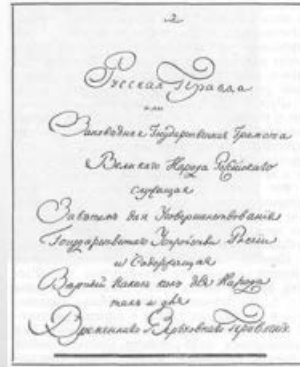 2
Русская Правда
или
Заповедная Государственная Грамота
Великаго Народа Российскаго
служащая
Заветом для Усовершенствования
Государственнаго Устройства России
и Содержащая
Верный Наказ как для Народа
так и для
Временнаго Верховнаго Правления